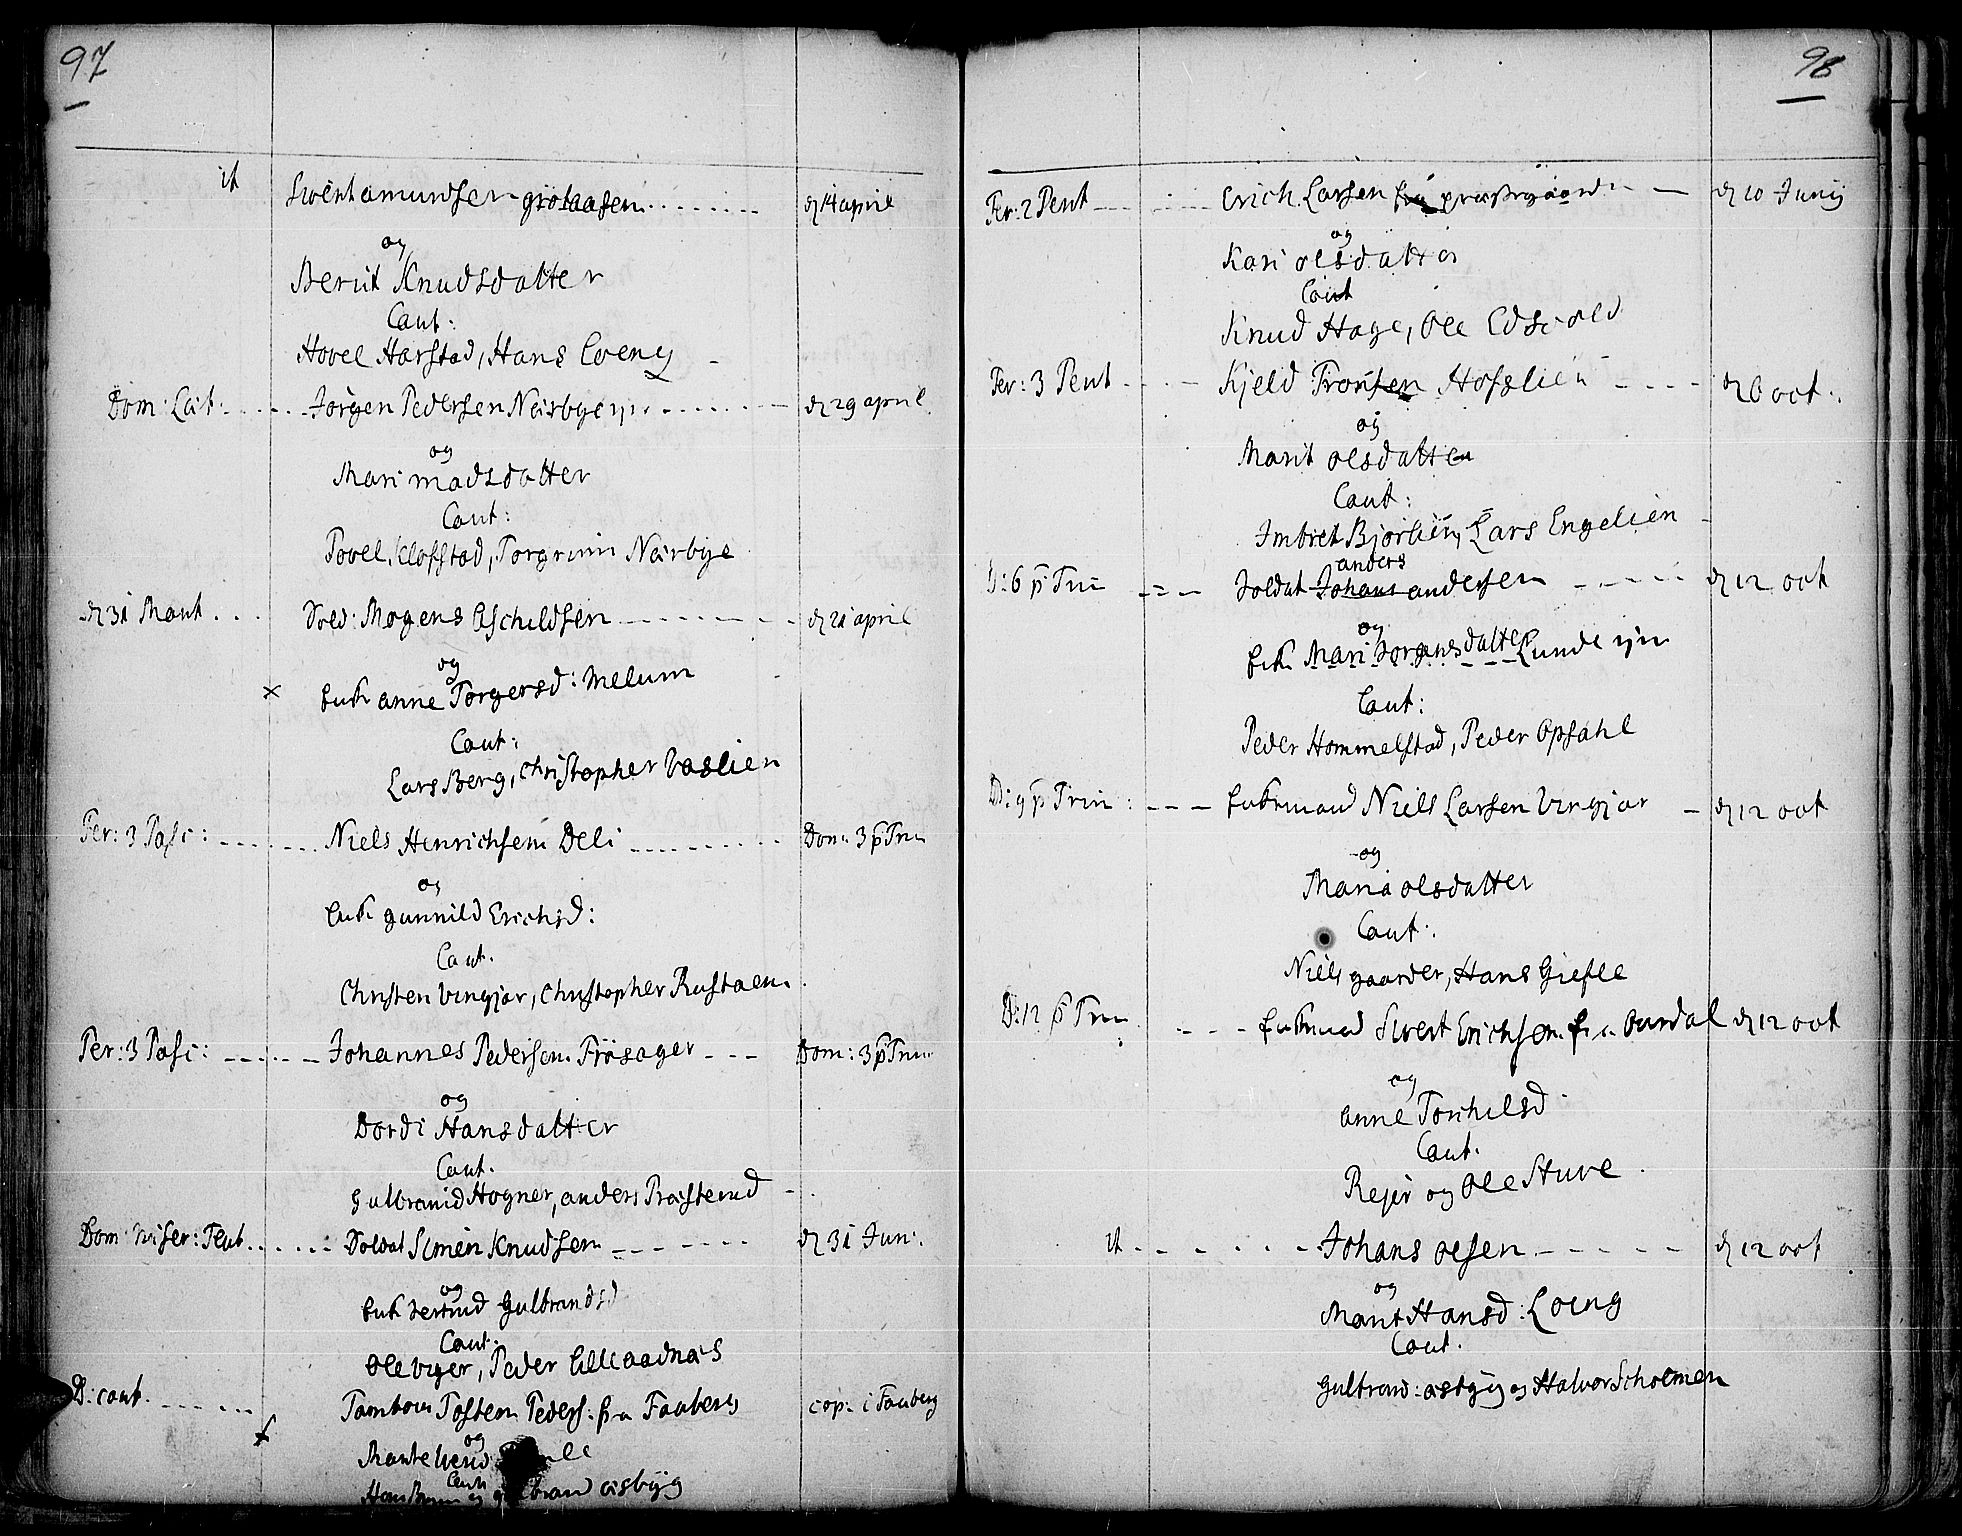 97
it Swent amundsen grötaasen d 14 april
og
Beruit Knudsdatter
Caut:
Hovel Harstad, Hans Loeng
Dom: Læt: Jörgen Pedersen Nærbye d 29 april
og
Mari madsdatter
Caut:
Povel Klofstad, Torgrim Nærbye
d 31 Mart Sold: Mogens Aschildsen d 21 april
og
x Enk anne Torgersd: Melum
Caut:
Lars Berg, Christopher Baslien
Fer: 3 Pasc: Niels Henrichsen Deli Dom 3 p Trin
og
Enk gunnild Erichsd:
Caut.
Christen Vingjar, Christopher Rustaen
Fer: 3 Pasc: Johannes Pedersen Frösager Dom: 3 p Trin
og
Dordi Hansdatter
Caut.
Gulbrand Hogner, anders Præsterud
Dom: Miser: Soldat Simen Knudsen d 31 Jun:
og
Enk Gulbrandsd
Caut:
Ole Vger, Peder Lilleaadnæs
D: cant. Tambour Tosten Peders: fra Faaberg cop: i Faaberg
og
Caut:
og gulbrand asbÿg
98
Fer: 2 Pent Erich Larsen fra præstgaarden d 10 Junij
og
Kari olsdatter
Caut
Knud Hage, Ole Edsvold
Fer: 3 Pent Kjeld Tronsen Hofslien d 6 oct:
og
Marit olsdatter
Caut:
Imbret Bjorlien, Lars Engelien
anders
D: 6 p Trin Soldat Johans andersen d 12 oct
og
Enk Mari Jorgensdatter Lunde
Caut:
Peder Hommelstad, Peder Opsahl
D: 9 p Trin: Enkemand Niels Larsen Vingjar d 12 oct
og
Maria olsdatter
Caut:
Niels gaarder, Hans Giefle
D: 12 p Trin Enkemand Sivert Erichsen fra Aurdal d 12 oct
og
anne Torchilsd
Caut.
Rejer og Ole Sture
it Johans olsen d 12 oct
og
Marit Hansd: Loeng
Caut.
Gulbrand asbÿg og Halvor Scholmen